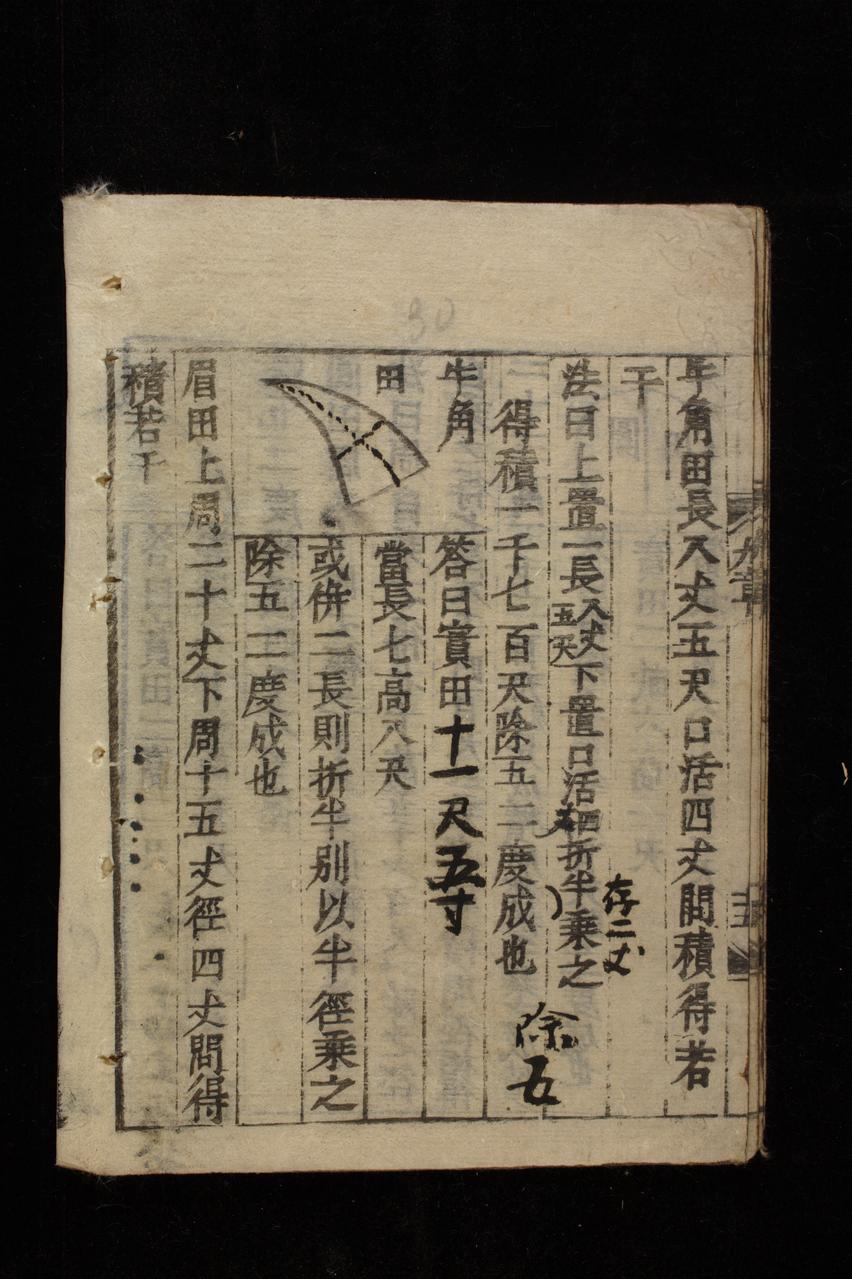 九章
十五
牛角田長八丈五尺口活四丈問積得若
干
法曰上置一長八丈五尺下置口活四丈折半乘之
存二丈
得積一千七百尺除五二度成也
除五
牛角
田
答曰實田十一尺五寸
當長七高八尺
或併二長則折半别以半徑乘之
除五二度成也
眉田上周二十丈下周十五丈徑四丈問得
積若干